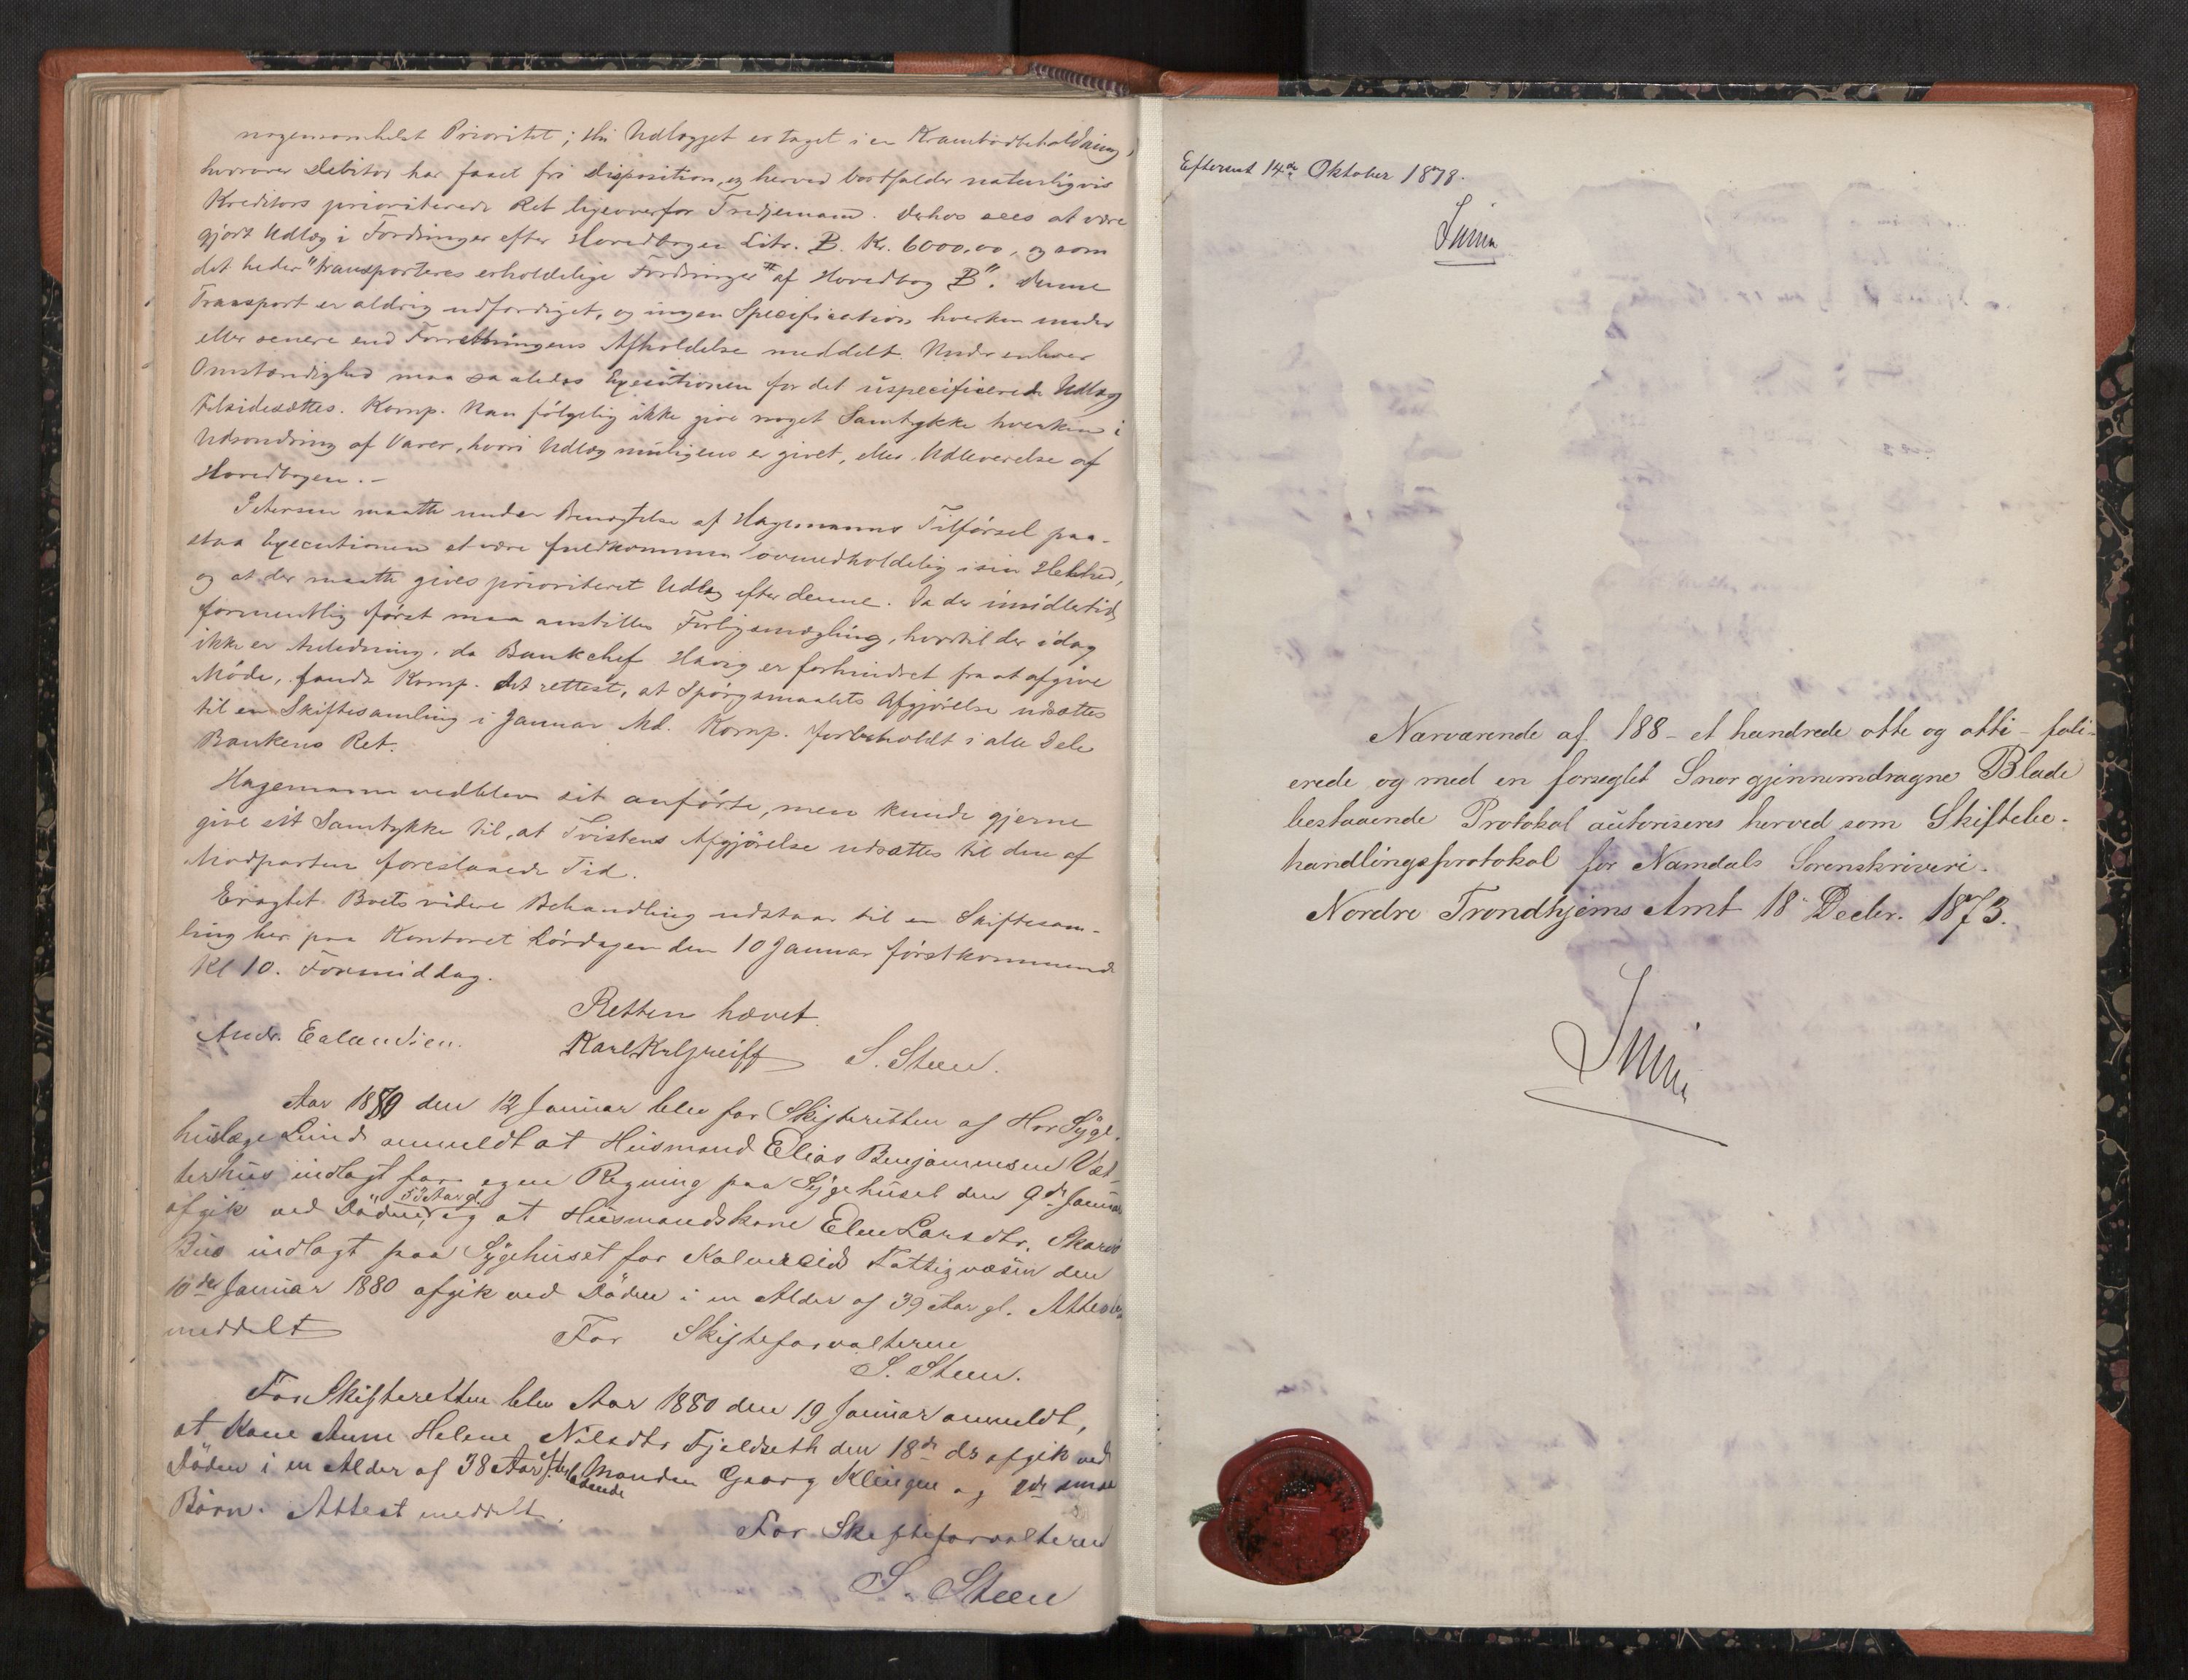 nogensomhelst Prioritet; thi Udlægget er taget i en Krambodbeholdning,
hvorover Debitor har faaet fri Disposition, og herved bortfalder naturligvis
Kreditors prioriterede Ret ligeoverfor Tredjemand. Derhos sees at være
gjort Udlæg i Fordringer efter Hovedbogen Litr. B. Kr. 6000,00, og som
det heder "transporteres erholdelige Fordringer af Hovedbog B". Denne
Transport er aldrig udfærdiget, og ingen Specification hverken under
eller senere end Forretningens Afholdelse meddelt. Under enhver
Omstændighed maa saaledes Executionen for det uspecificerede Udlæg
tilsidesættes. Komp. kan følgelig ikke give noget Samtykke hverken i
Udsondring af Varer, hvori Udlæg muligens er givet, eller Udleverelse af
Hovedbogen.-
Petersen maatte under Benægtelse af Hagemanns Tilførsel paa-
staa Executionen at være fuldkommen lovmedholdelig i sin Helhed,
og at der maatte gives prioriteret Udlæg efter denne. Da der imidlertid
formentlig først maa anstilles Forligsmægling, hvortil der idag
ikke er Anledning, da Bankchef Havig er forhindret fra at afgive
Møde, fandt Komp. det rettest, at Spørgsmaalets Afgjørelse udsættes
til en Skiftesamling i Januar Md. Komp. forbeholdt i alle Dele
Bankens Ret.
Hagemann vedblev sit anførte, men kunde gjerne
give sit Samtykke til, at Tvistens Afgjørelse udsættes til den af
Modparten foreslaaede Tid.
Eragtet. Boets videre Behandling udstaar til en Skiftesam-
ling her paa Kontoret Lørdagen den 10 Januar førstkommende
Kl 10. Formiddag.
Retten hævet.
Andr. S. Steen.
Aar 1880 den 12 Januar blev for Skifteretten af Hor Syge-
huslæge Lund anmeldt at Husmand Elias Benjaminsen Vet-
terhus indlagt for egen Regning paa Sygehuset den 9de Januar
53 Aar gl.
afgik ved Døden, og at Husmandskone Elen Larsdtr. Skarvs
Bus indlagt paa Sygehuset for Kolvereids Fattigvæsen den
10de Januar 1880 afgik ved Døden i en Alder af 39 Aar gl. Attester
meddelt
For Skifteforvalteren
S. Steen.
For Skifteretten blev Aar 1880 den 19 Januar anmeldt,
at Kone Anne Helene Nilsdtr Fjeldseth den 18de ds afgik ved
Døden i en Alder af 38 Aar efterladende Manden Georg Klingen og 2de smaa
Børn. Attest meddelt.
For Skifteforvalteren
S. Steen
Efterseet 14de Oktober 1878.
Nærværende af 188 - et hundrede otte og otti - foli-
erede og med en forseglet Snor gjennemdragne Blade
bestaaende Protokol autoriseres herved som Skiftebe-
handlingsprotokol for Namdals Sorenskriveri.
Nordre Trondhjems Amt 18 Decbr. 1873.